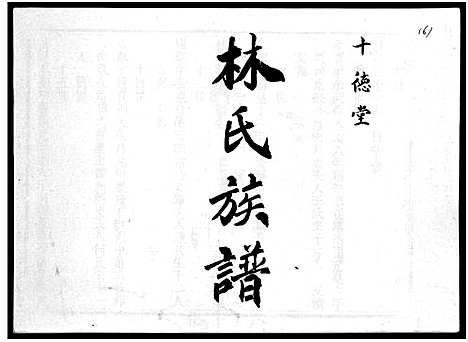 (6)
十德堂
林氏族譜